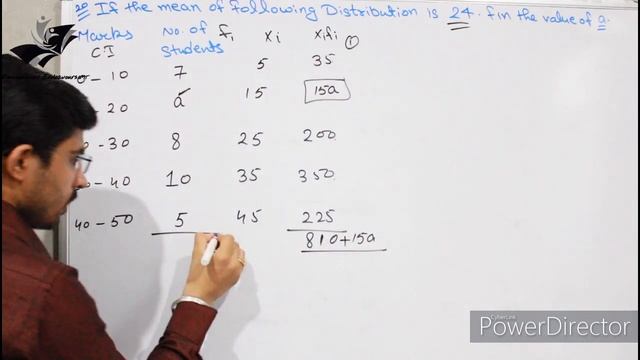 20 If the mean of following Distribution is 24. fin the value of a.
Marks No. of fi xi xifi ①
CI Students
0-10 7 5 35
-20 a 15 15a
0-30 8 25 200
0-40 10 35 350
40-50 5 45 225
810+15a
CyberLink
PowerDirector